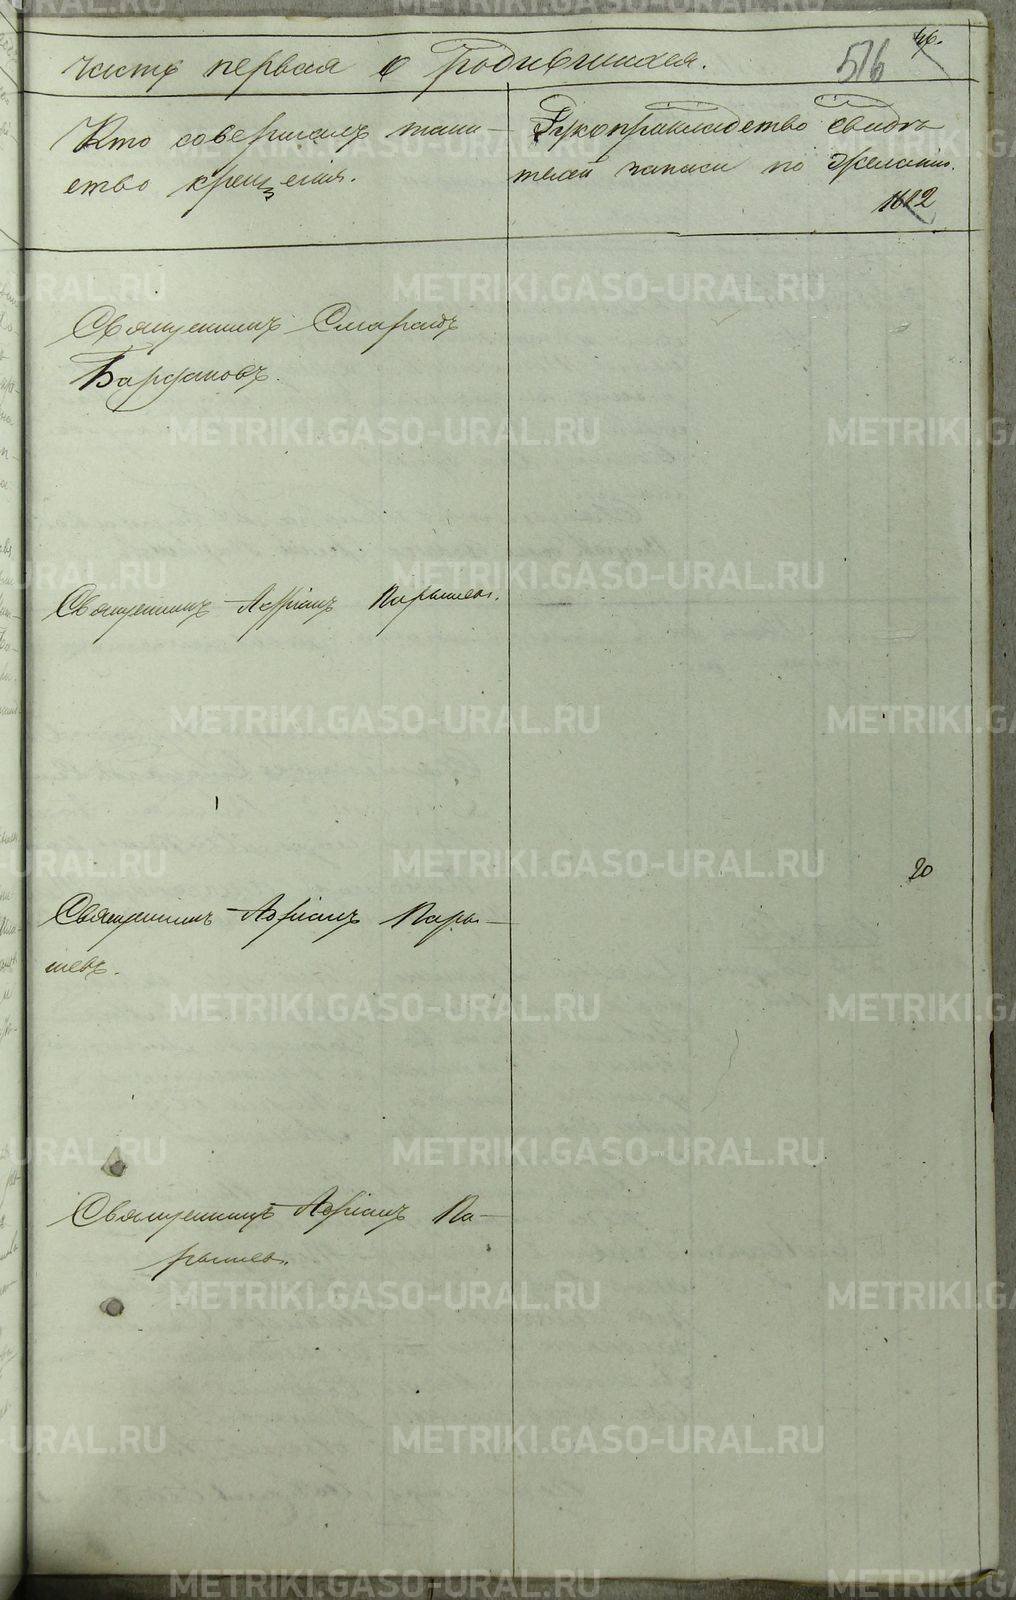 часть первая о родившихся.
516
46.
Кто совершалъ таин-
ство крещенія.
Рукоприкладство свидѣ-
телей записи по желанію.
1612
Священникъ Смарагдъ
Бардаковъ.
Священникъ Адріанъ Парышевъ.
20
Священникъ Адріанъ Пары-
шевъ.
Священникъ Адріанъ Па-
рышевъ.
METRIKI.GASO-URAL.RU